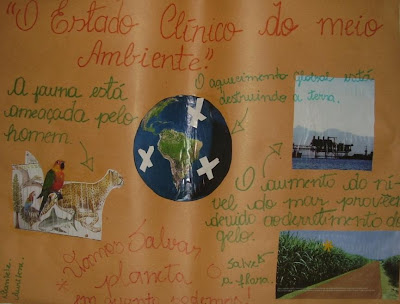 "O Estado Clínico do meio
Ambiente."
A fauna está
ameaçada pelo
homem.
O aquecimento global está
destruindo a terra.
O aumento do ní-
vel do mar provém
devido ao derretimento do
gelo.
Vamos Salvar
* planeta
enquanto podemos!
Salve
a flora.